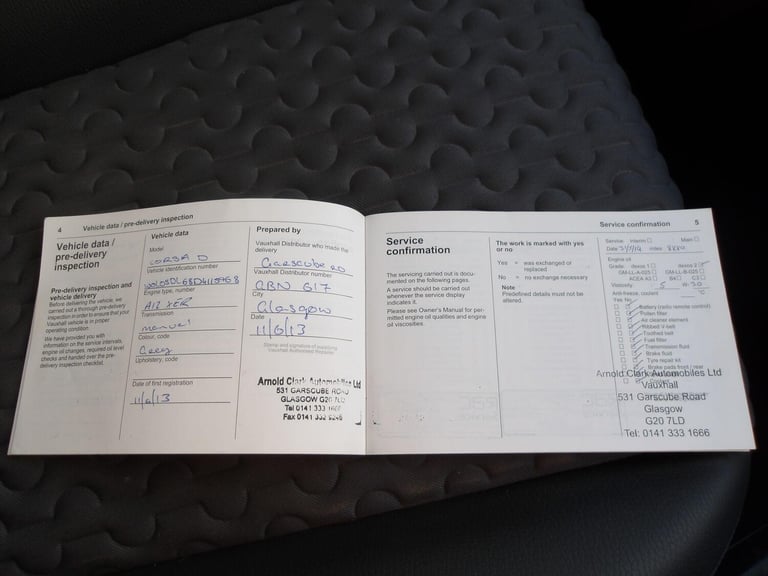 4 Vehicle data / pre-delivery inspection
Vehicle data /
pre-delivery
inspection
Pre-delivery inspection and
vehicle delivery
Before delivering the vehicle, we
carried out a thorough pre-delivery
inspection in order to ensure that your
Vauxhall vehicle is in proper
operating condition.
We have provided you with
information on the service intervals,
engine oil changes, required oil level
checks and handed over the pre-
delivery inspection checklist.
Vehicle data
Model
CORSA D
Vehicle identification number
Engine type, number
A12 XER
Transmission
manual
Colour, code
Grey
Upholstery, code
Date of first registration
11/6/13
Prepared by
Vauxhall Distributor who made the
delivery
Garscube RD
Vauxhall Distributor number
GBN 617
City
Glasgow
Date
11/6/13
Stamp and signature of supplying
Vauxhall Authorised Repairer
Arnold Clark Automobiles Ltd
531 GARSCUBE ROAD
GLASGOW G20 7LD
Tel 0141 333 1666
Fax 0141 332
Service confirmation 5
Service
confirmation
The servicing carried out is docu-
mented on the following pages.
A service should be carried out
whenever the service display
indicates it.
Please see Owner's Manual for per-
mitted engine oil qualities and engine
oil viscosities.
The work is marked with yes
or no
Yes = was exchanged or
replaced
No = no exchange necessary
Note
Predefined details must not be
altered.
Service Interim Main
Date miles
Engine oil
Grade dexos 1 dexos 2
GM-LL-A-025 GM-LL-B-025
ACEA A3 B4 C3
Viscosity 5 W- 30
Anti-freeze, coolant °C
Yes No
Battery (radio remote control)
Pollen filter
Air cleaner element
Ribbed V-belt
Toothed belt
Fuel filter
Transmission fluid
Brake fluid
Tyre repair kit
Brake pads front / rear
Arnold Clark Automobiles Ltd
Vauxhall
531 Garscube Road
Glasgow
G20 7LD
Tel: 0141 333 1666